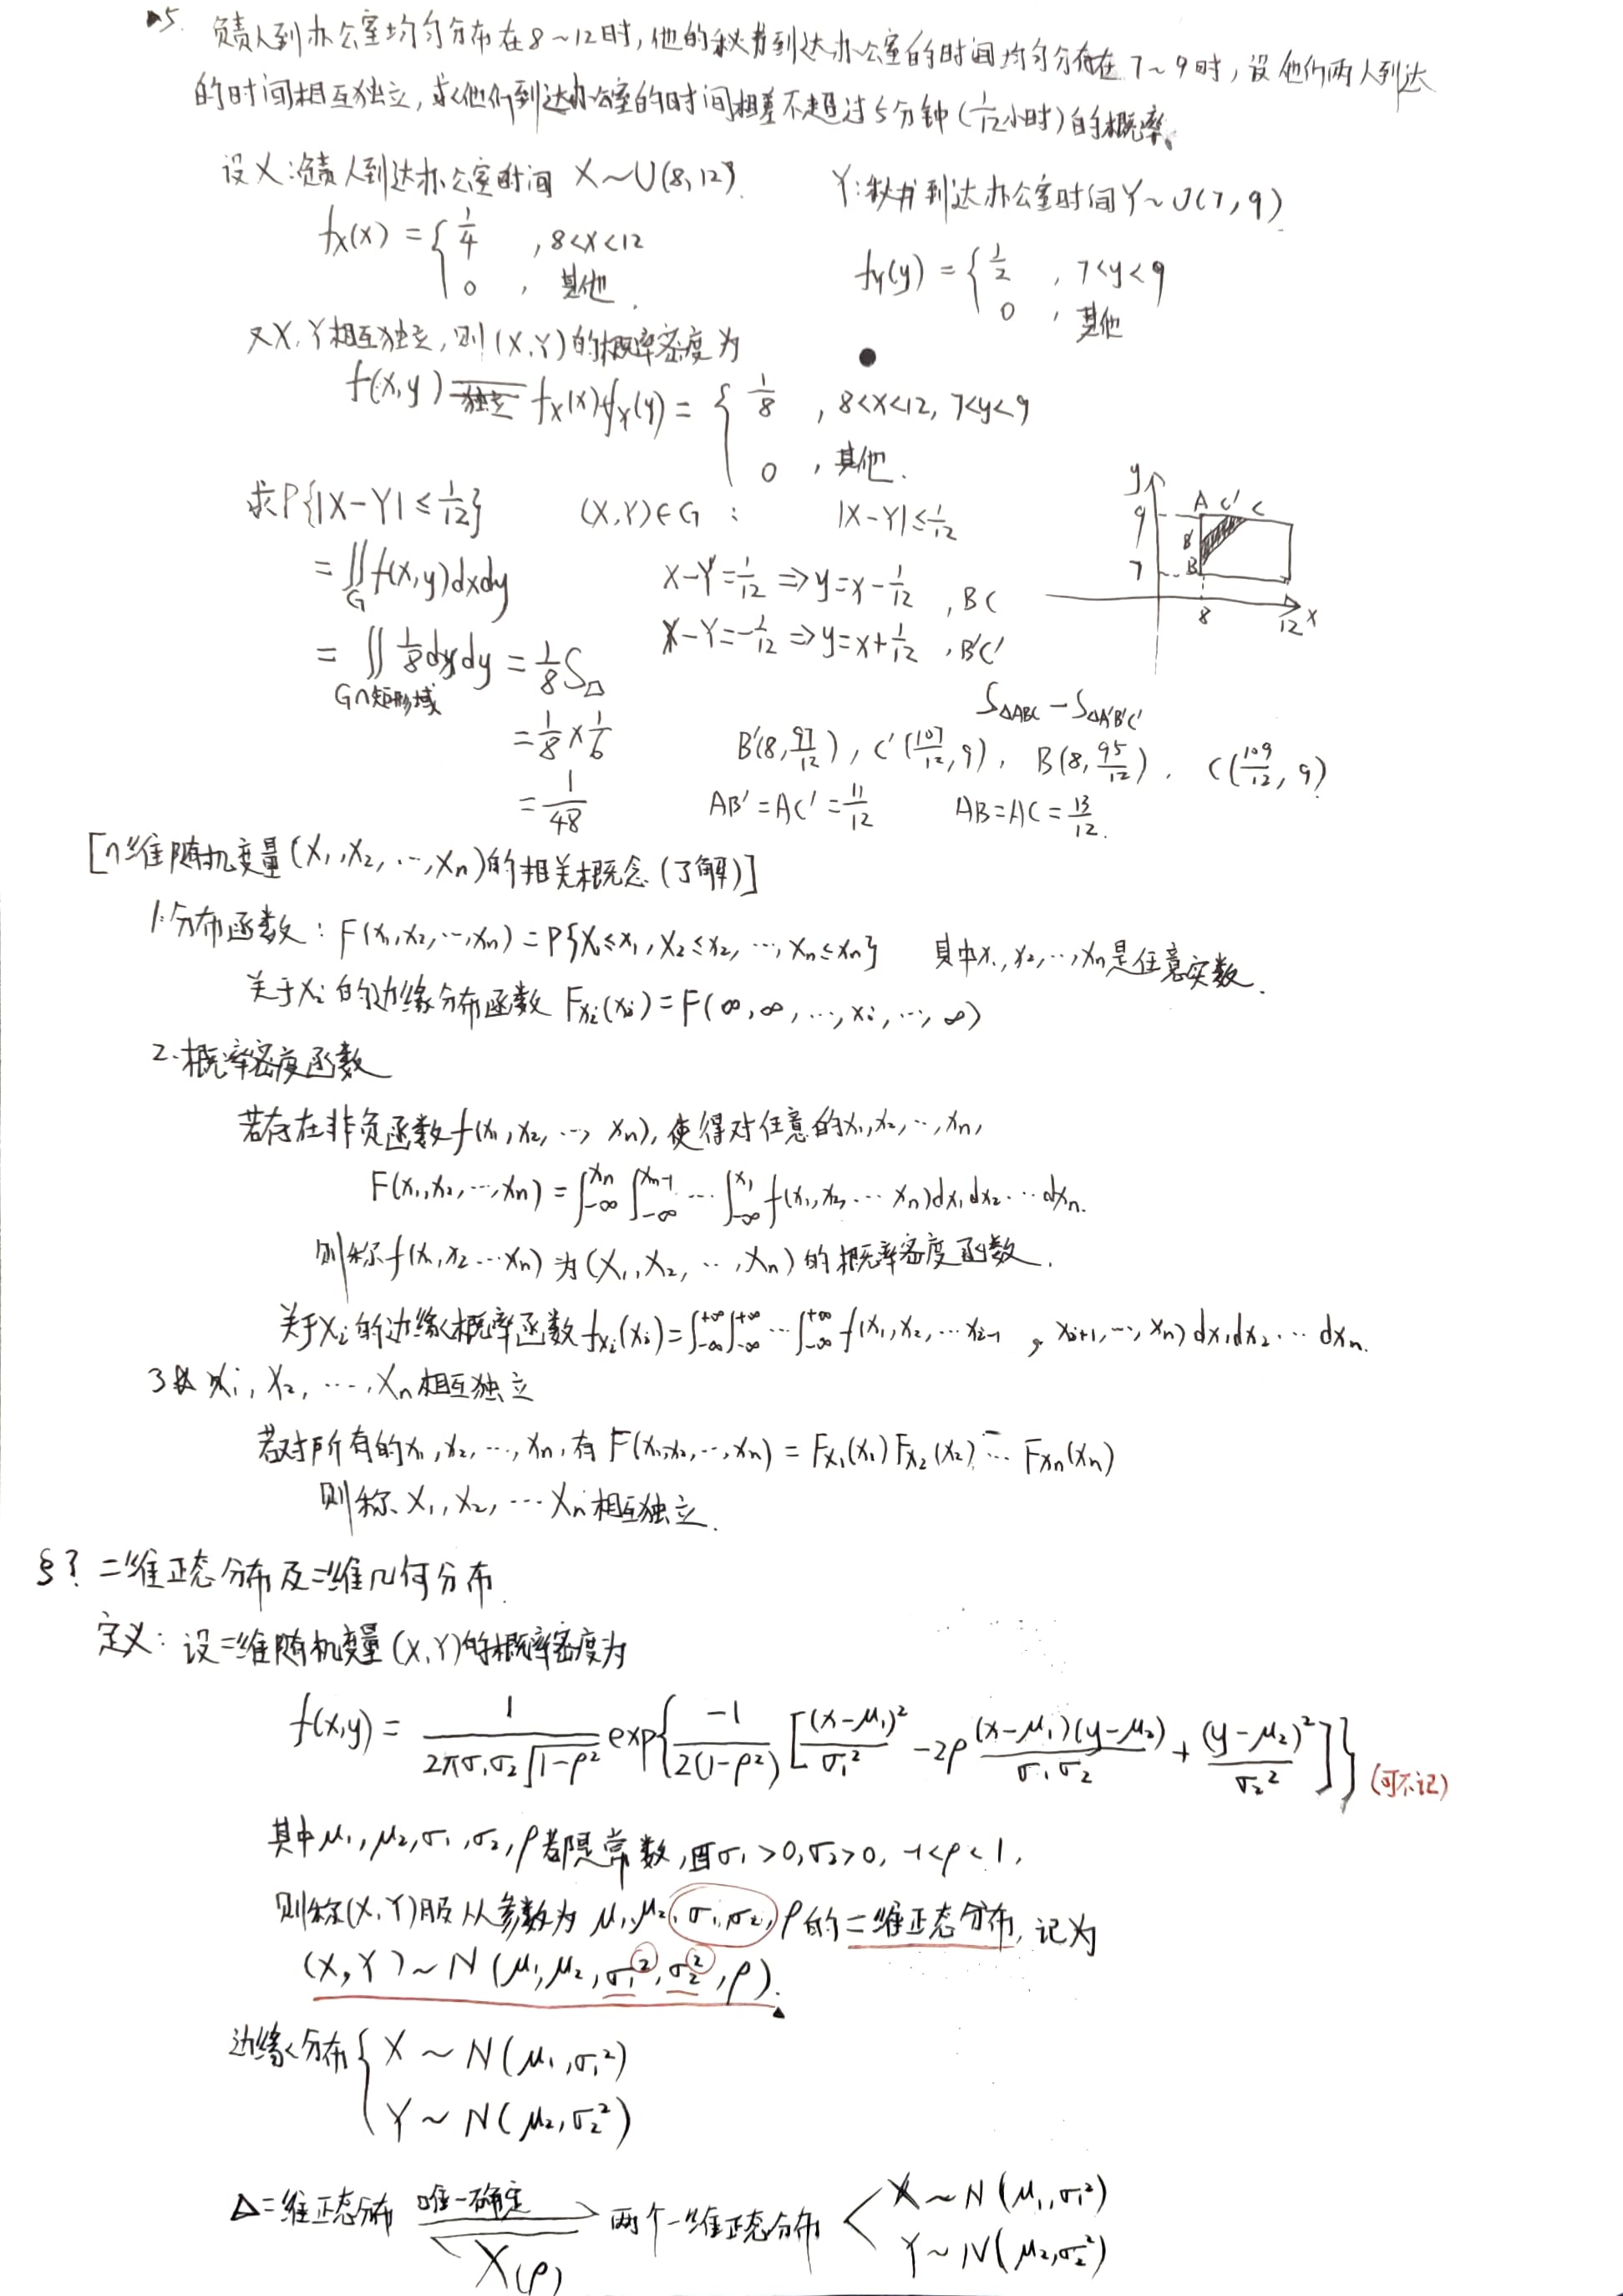 5. 负责人到办公室均匀分布在8~12时,他的秘书到达办公室的时间均匀分布在7~9时,设他们两人到达
的时间相互独立,求他们到达办公室的时间相差不超过5分钟(1/12小时)的概率。
设X:负责人到达办公室时间 X~U(8,12). Y:秘书到达办公室时间Y~U(7,9)
fX(x) = { 1/4 , 8<x<12
0 , 其他.
fY(y) = { 1/2 , 7<y<9
0 , 其他
又X,Y相互独立,则(X,Y)的概率密度为
f(x,y) 独立 fX(x)fY(y) = { 1/8 , 8<x<12, 7<y<9
0 , 其他.
求P{|X-Y| ≤ 1/12} (X,Y)∈G : |X-Y|≤1/12
= ∬G f(x,y)dxdy X-Y=1/12 ⇒ y=x-1/12 , BC
= ∬G∩矩形域 1/8 dxdy = 1/8 S△ X-Y=-1/12 ⇒ y=x+1/12 , B'C'
y 9 7 A C' C B' B 8 12 x
S△ABC - S△A'B'C'
= 1/8 × 1/6 B'(8, 97/12), C'(107/12, 9), B(8, 95/12), C(109/12, 9)
= 1/48 AB'=AC'=11/12 AB=AC=13/12.
[n维随机变量(X1,X2,…,Xn)的相关概念(了解)]
1.分布函数: F(x1,x2,…,xn) = P{X1≤x1, X2≤x2, …, Xn≤xn} 其中x1,x2,…,xn是任意实数.
关于Xi的边缘分布函数 FXi(xi) = F(∞,∞,…,xi,…,∞)
2.概率密度函数
若存在非负函数f(x1,x2,…,xn),使得对任意的x1,x2,…,xn,
F(x1,x2,…,xn) = ∫-∞^xn ∫-∞^xn-1 … ∫-∞^x1 f(x1,x2,…xn)dx1dx2…dxn.
则称f(x1,x2…xn)为(X1,X2,…,Xn)的概率密度函数.
关于Xi的边缘概率函数fXi(xi) = ∫-∞^+∞ ∫-∞^+∞ … ∫-∞^+∞ f(x1,x2,…xi-1 , xi+1,…,xn)dx1dx2…dxn.
3 X1,X2,…,Xn相互独立
若对所有的x1,x2,…,xn,有F(x1,x2,…,xn) = FX1(x1)FX2(x2)…FXn(xn)
则称X1,X2,…Xn相互独立.
§? 二维正态分布及二维几何分布.
定义: 设二维随机变量(X,Y)的概率密度为
f(x,y) = 1/(2πσ1σ2√(1-ρ²)) exp{ -1/(2(1-ρ²)) [ (x-μ1)²/σ1² - 2ρ (x-μ1)(y-μ2)/(σ1σ2) + (y-μ2)²/σ2² ] } (可不记)
其中μ1,μ2,σ1,σ2,ρ都是常数,且σ1>0,σ2>0,-1<ρ<1,
则称(X,Y)服从参数为μ1,μ2,σ1,σ2,ρ的二维正态分布,记为
(X,Y)~N(μ1,μ2,σ1²,σ2²,ρ).
边缘分布 { X ~ N(μ1,σ1²)
Y ~ N(μ2,σ2²)
△二维正态分布 唯一确定 两个一维正态分布 < X~N(μ1,σ1²)
X(ρ) Y~N(μ2,σ2²)